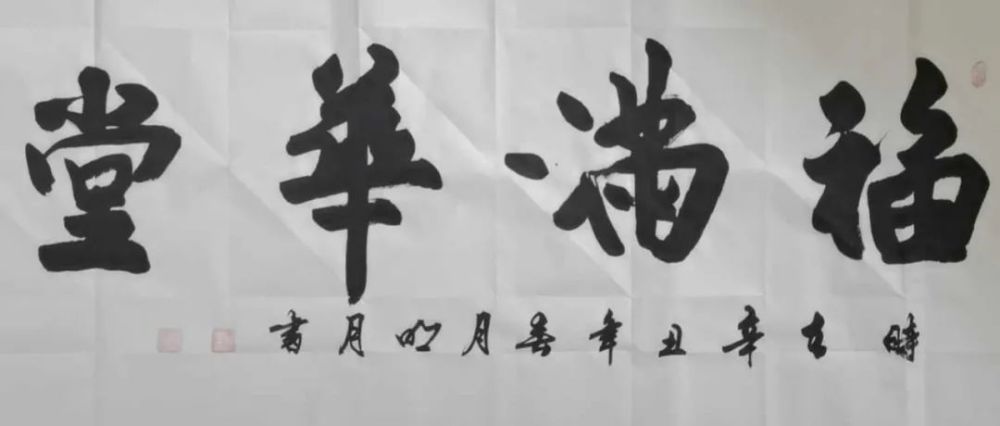 福满華堂
時在辛丑年春月明月書